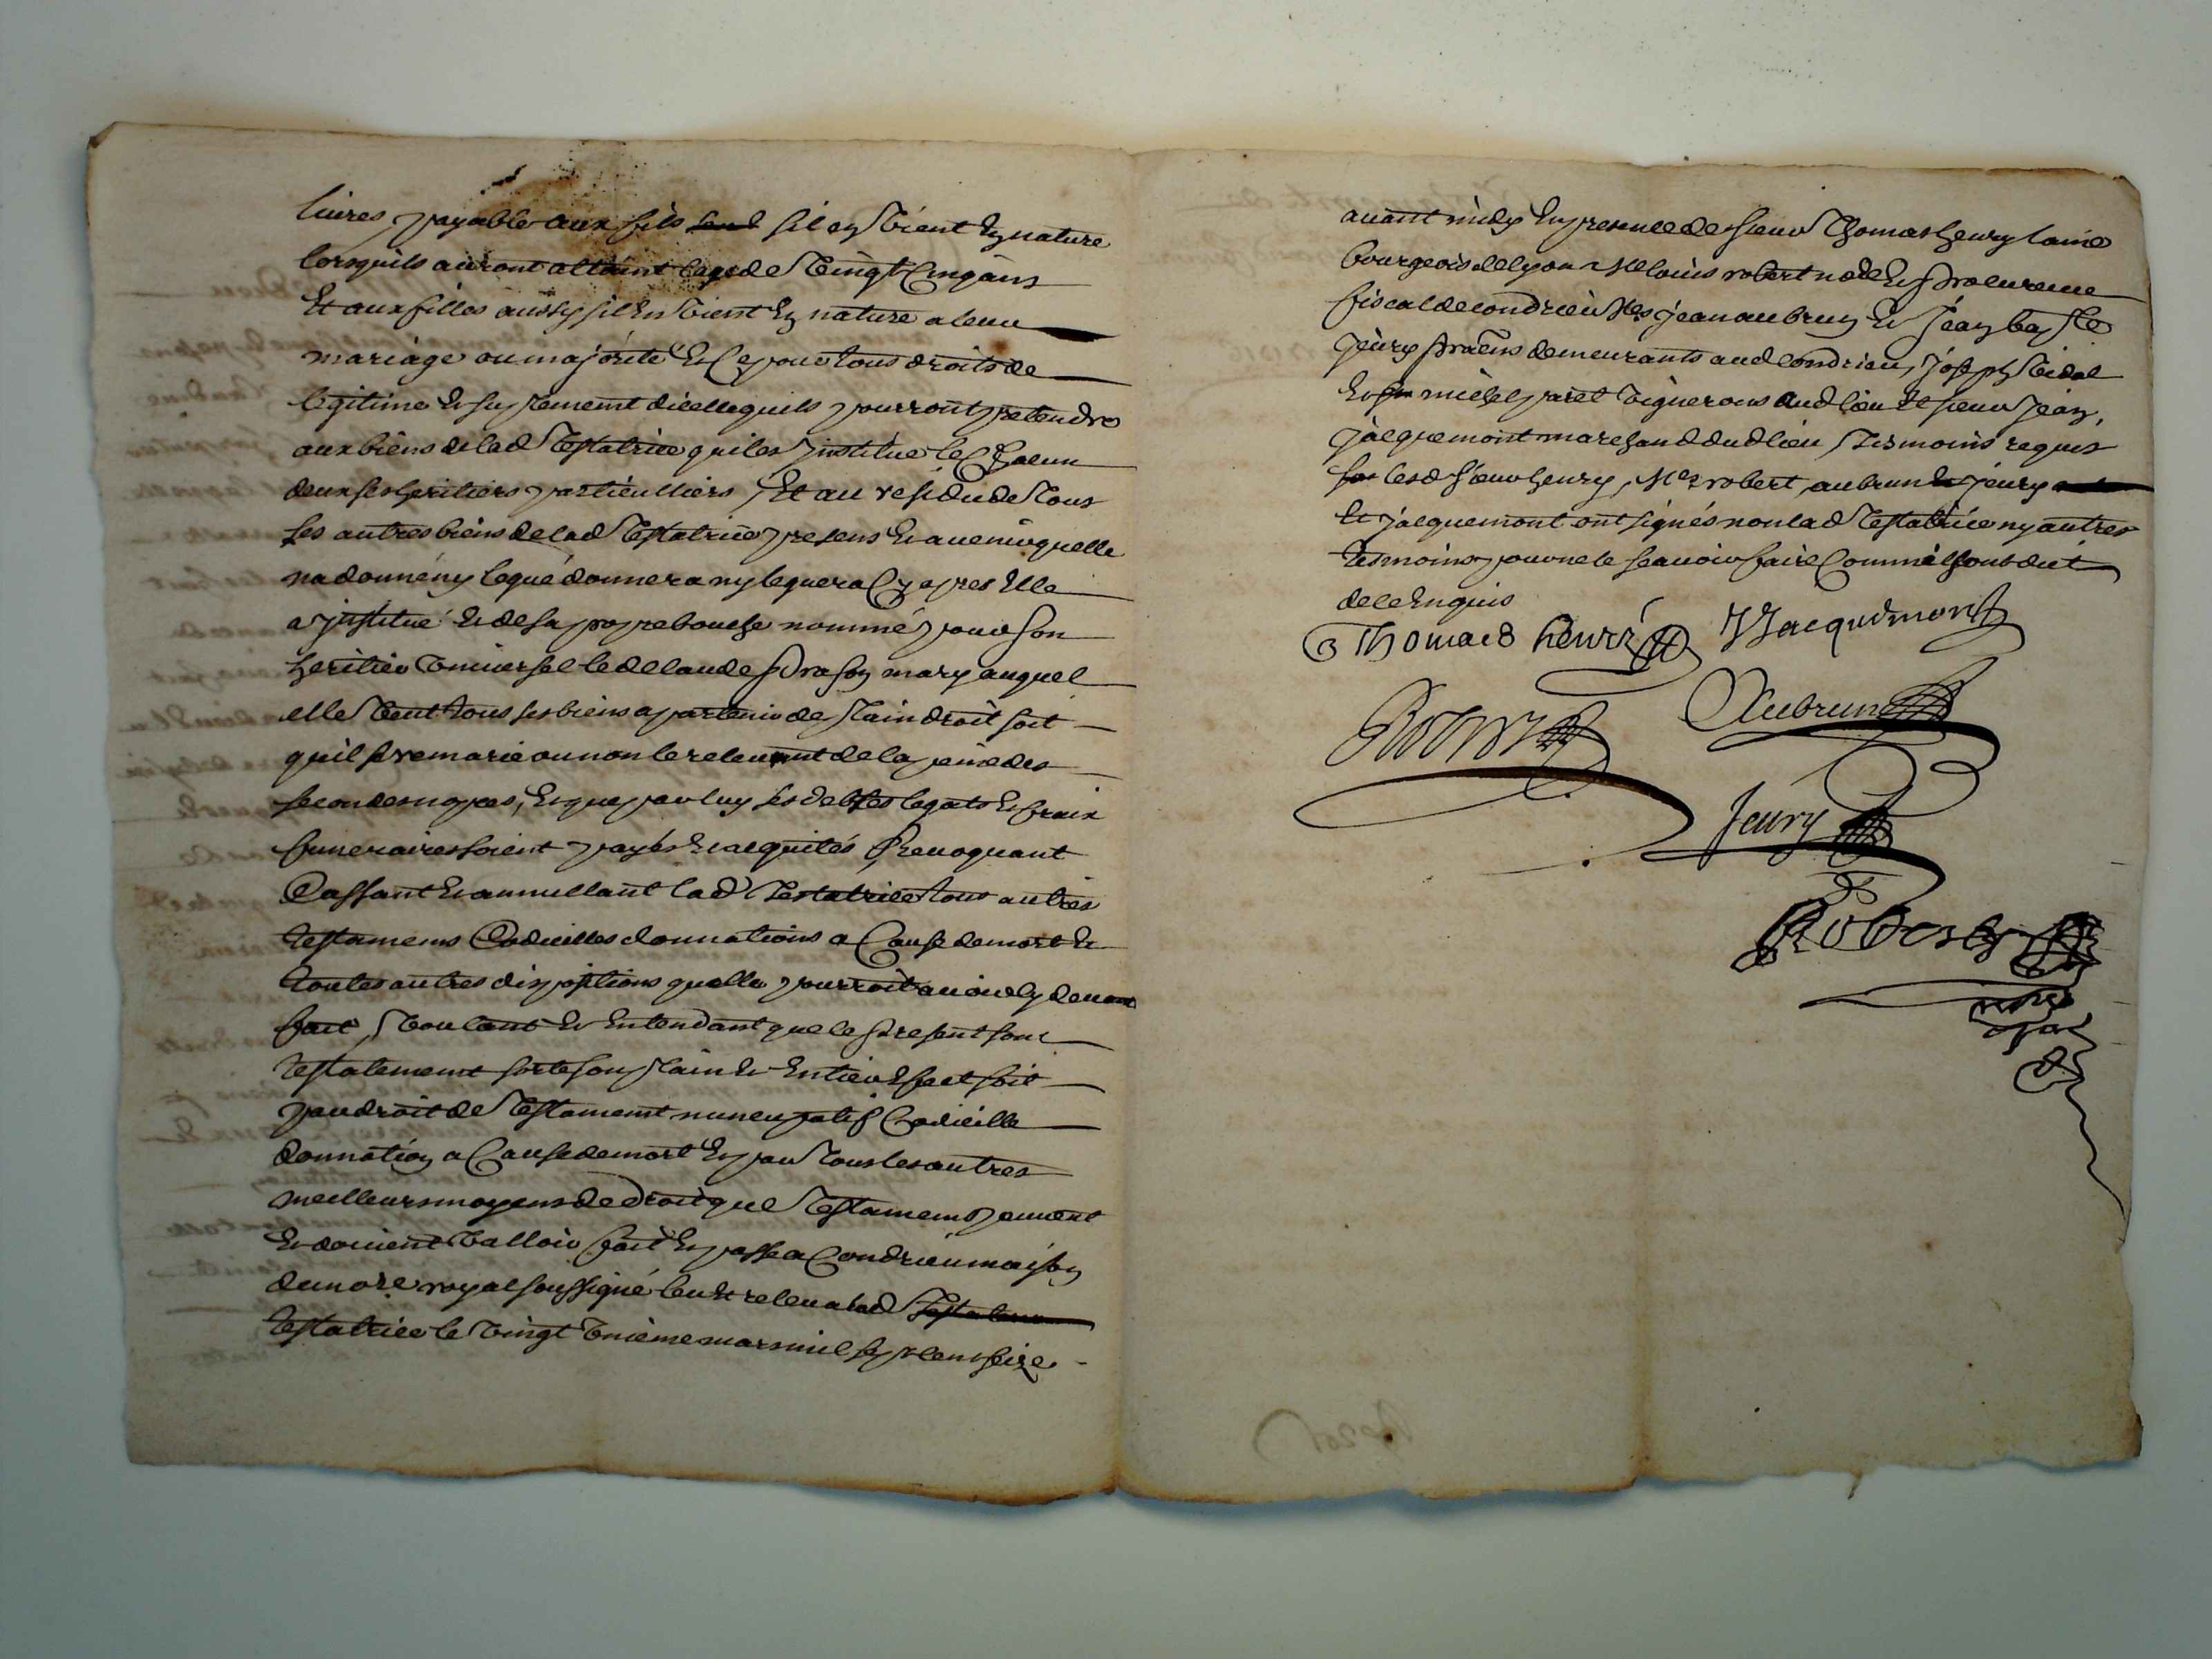 livres payable aux fils sil en vient en nature
lorsquils auront attaint laage de vingt cinq ans
Et aux filles aussy sil en vient en nature a leur
mariage ou majorité Et ce pour tous droits de
legitime et suplement dicelle quils pourront pretendre
aux biens de lad testatrice qui les institue le chacun
deux ses heritiers particulliers, Et au residu de tous
ses autres biens de lad testatrice presens et avenir quelle
na donné ny legué donnera ny leguera Cy apres Elle
a institué et de sa propre bouche nommé pour son
heritier universel led Claude son mary auquel
elle veut tous ses biens apartenir de plain droit soit
quil se remarie ou non le relevant de la peine des
secondes nopces, Et que par luy ses debtes legats et fraix
funeraires soient payés et acquités, Revoquant
Cassant et annullant lad testatrice tous autres
testamens Codicilles donnations a Cause de mort et
toutes autres dispositions quelle pourroit avoir cy devant
fait, voulant et entendant que le present son
testatement sorte son plain et entier effect soit
par droit de testament nuncupatif Codicille
donnation a Cause de mort et par tous les autres
meilleurs moyens de droit que testamens peuvent
et doivent valloir fait et passé a Condrieu maison
du nore royal soussigné leu et releu a lad
testatrice le vingt unieme mars mil sept cens seize
avant midy en presence de sieur Thomas henry lainé
bourgeois de lyon Me louis robert nore et procureur
fiscal de condrieu Mes jean aubrun et jean baptte
jeury pratiens demeurants aud Condrieu, joseph vidal
et michel paret vignerons aud lieu et sieur jean
jacquemont marchand dud lieu tesmoins requis
lesd sieur henry, Me robert, aubrun jeury
et jacquemont ont signés non lad testatrice ny autres
tesmoins pour ne le scavoir faire Comme ils ont dit
de ce enquis
Thomas henry J Jacquemont
Robert Aubrun
Jeury
Robert
nore